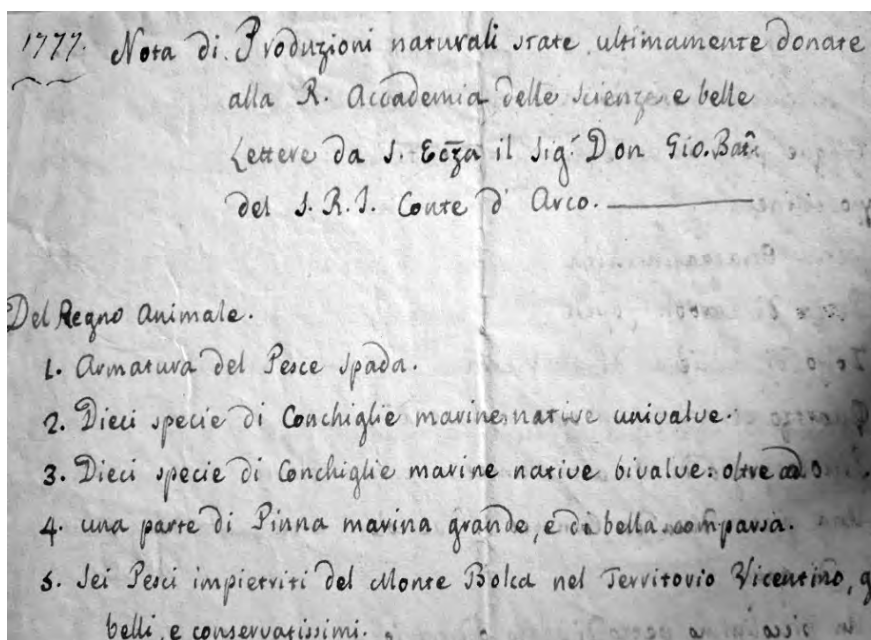 1777. Nota di Produzioni naturali state ultimamente donate
alla R. Accademia delle Scienze e belle
Lettere da S. Ecz̄a il Sig.r Don Gio. Bat̄t̄a
del S. R. I. Conte d'Arco.
Del Regno Animale.
1. Armatura del Pesce Spada.
2. Dieci specie di Conchiglie marine native univalve.
3. Dieci specie di Conchiglie marine native bivalve: oltre ad
4. una parte di Pinna marina grande, e di bella comparsa.
5. Sei Pesci impietriti del Monte Bolca nel Territorio Vicentino,
belli, e conservatissimi.